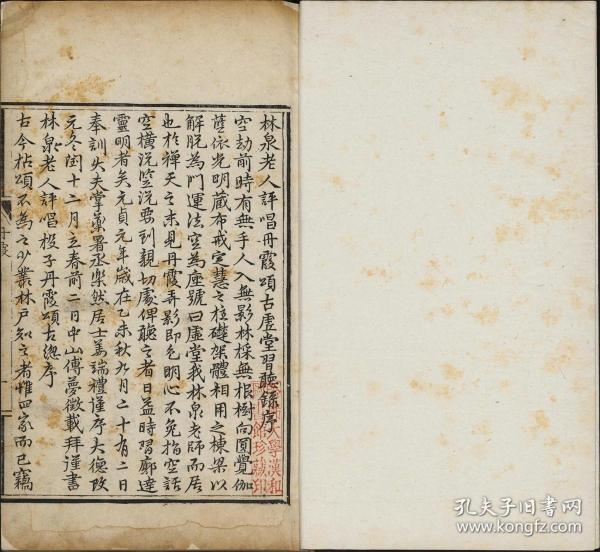 林泉老人評唱丹霞頌古虛堂習聽錄序
空劫前時有無手人入無影林採無根樹向圓覺伽
藍依光明藏布戒定慧之柱礎架體相用之棟梁以
解脫為門運法空為座號曰虛堂我林泉老師而居
也於禪天之末見丹霞弄影即色明心不免指空話
空橫說竪說要到親切處俾聽之者日益時習廓達
靈明者矣元貞元年歲在乙未秋九月二十有二日
奉訓大夫掌薬署丞樂然居士姜端禮謹序大德改
元冬閏十二月立春前二日中山傅夢徵載拜謹書
林泉老人評唱投子丹霞頌古總序
古今拈頌不為之少叢林戶知之者惟四家而已竊
丹霞
一
孔夫子旧书网
www.kongfz.com